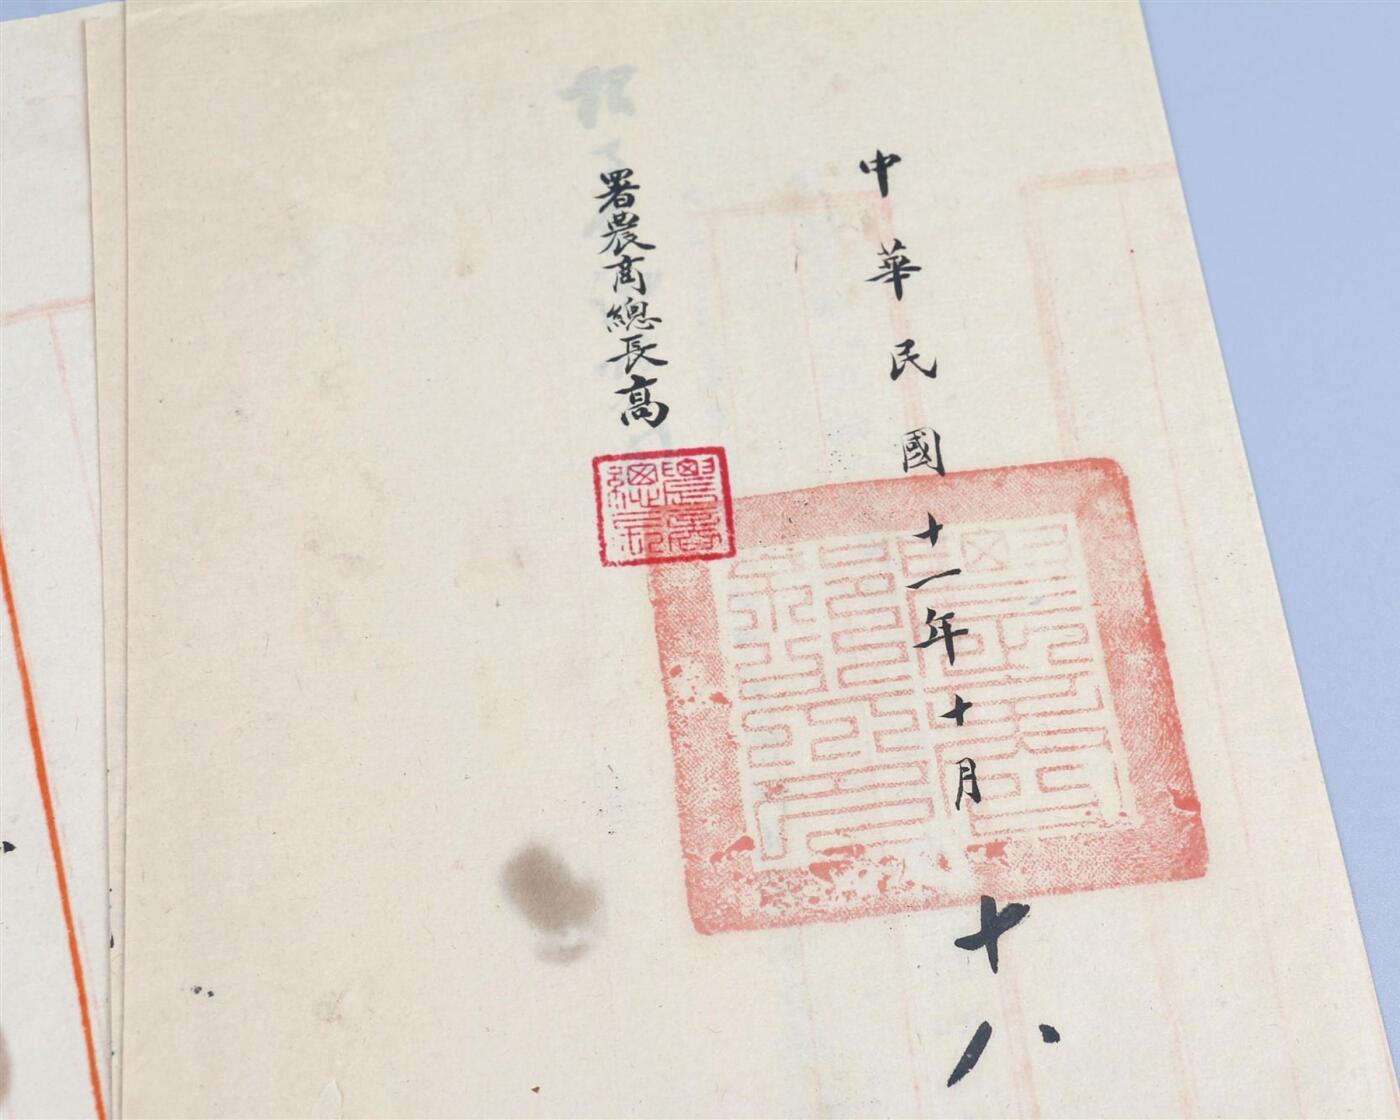 中華民國十一年十月十八
署農商總長高
農商總長